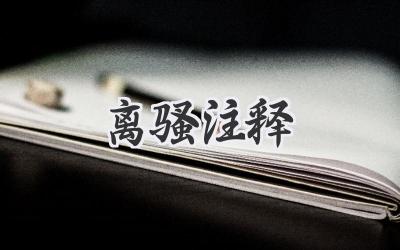 离骚注释